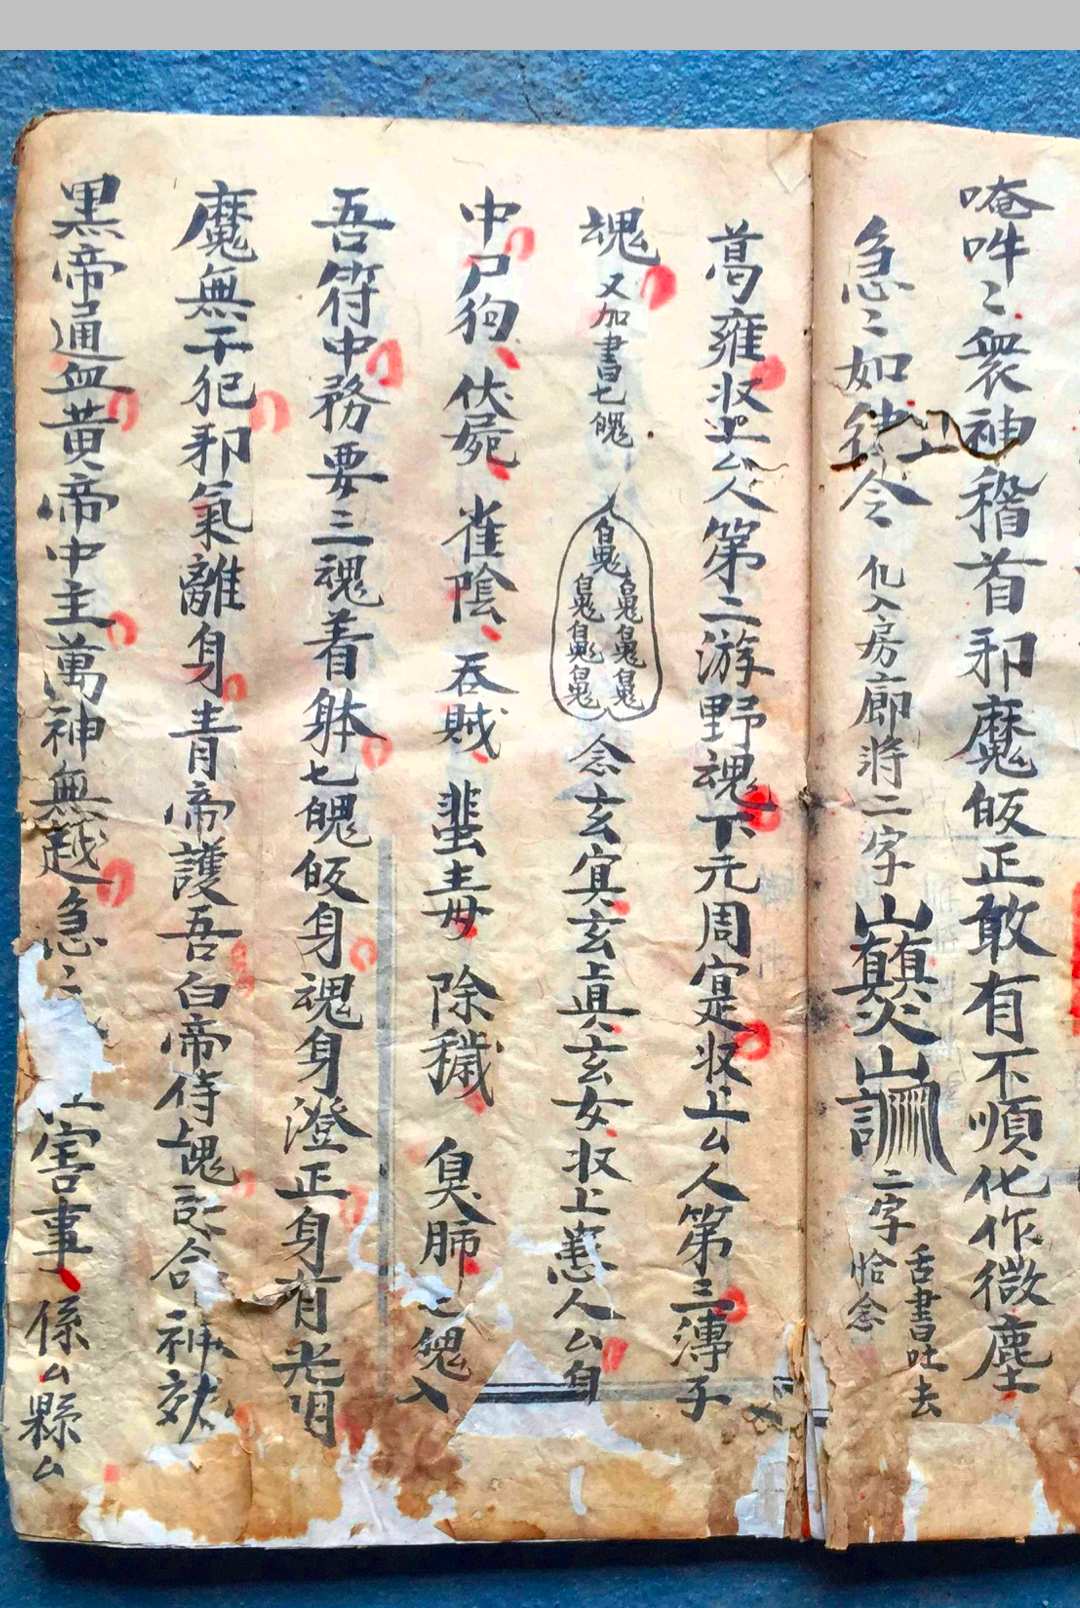 唵吽〻衆神稽首邪魔皈正敢有不順化作微塵
急〻如律令 化入房廊將二字 二字 舌書吐去 恰念
葛雍收上厶人第二游野魂下元周寔收上厶人第三溥子
魂 又加書七魄 念玄寘玄真玄女收上患人厶自
中尸狗 伏屍 雀陰 吞賊 蜚主毋 除穢 臭肺 七魄入
吾符中務要三魂着躰七魄皈身魂身澄正身有光明
魔無干犯邪氣離身青帝護吾白帝侍魄 合神
黒帝通血黄帝中主萬神無越急〻 害事 係厶縣厶